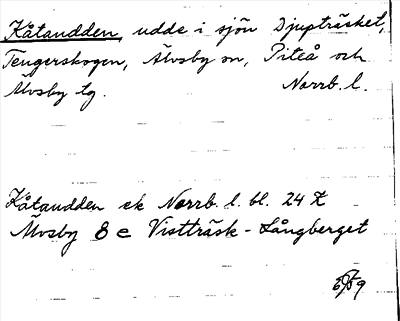 Kåtaudden, udde i sjön Djupträsket,
Tengerskogen, Älvsby sn, Piteå och
Älvsby tg. Norrb. l.
Kåtaudden ek Norrb. l. bl. 24
Älvsby 8 e Vistträsk - Långberget